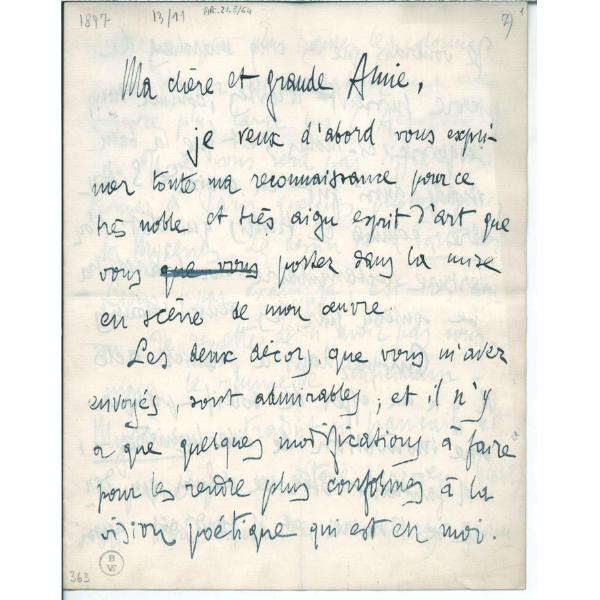 1897 13/11 ARC.21.3/64 2) 1
Ma chère et grande Amie,
je veux d'abord vous expri-
mer toute ma reconnaissance pour ce
très noble et très aigu esprit d'art que
vous que vous portez dans la mise
en scène de mon œuvre.
Les deux décors, que vous m'avez
envoyés, sont admirables ; et il n'y
a que quelques modifications à faire
pour les rendre plus conformes à la
vision poétique qui est en moi.
363